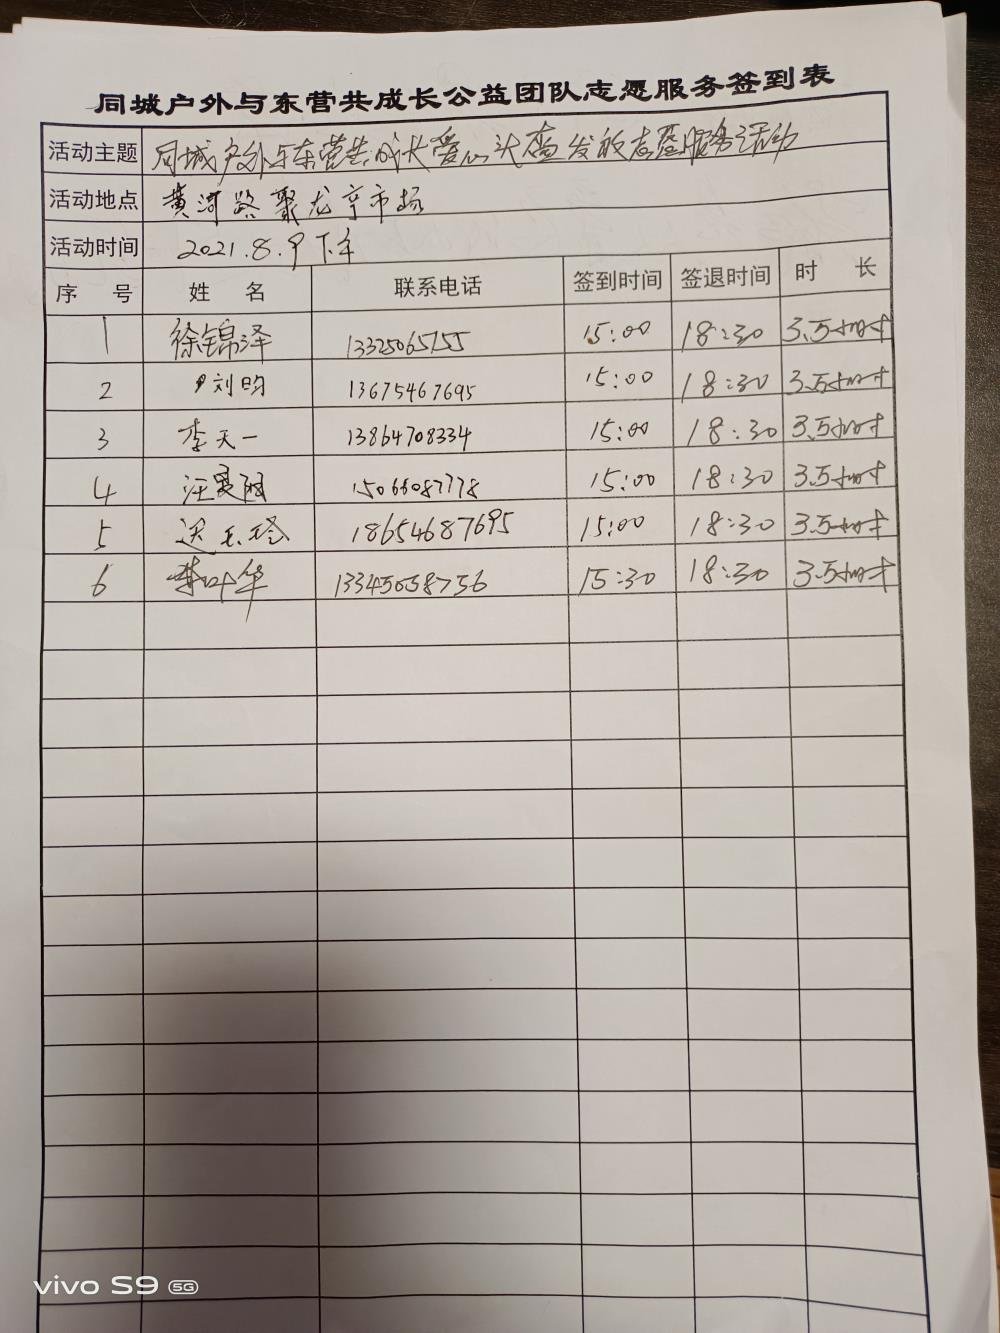 同城户外与东营共成长公益团队志愿服务签到表
活动主题 同城户外与东营共成长爱心头盔发放志愿服务活动
活动地点 黄河路聚龙亨市场
活动时间 2021.8.9下午
序号 姓名 联系电话 签到时间 签退时间 时长
1 徐锦泽 13325065755 15:00 18:30 3.5小时
2 刘昀 13675467695 15:00 18:30 3.5小时
3 李天一 13864708334 15:00 18:30 3.5小时
4 汪 15066087778 15:00 18:30 3.5小时
5 18654687695 15:00 18:30 3.5小时
6 李叶华 13345058756 15:30 18:30 3.5小时
vivo S9 5G